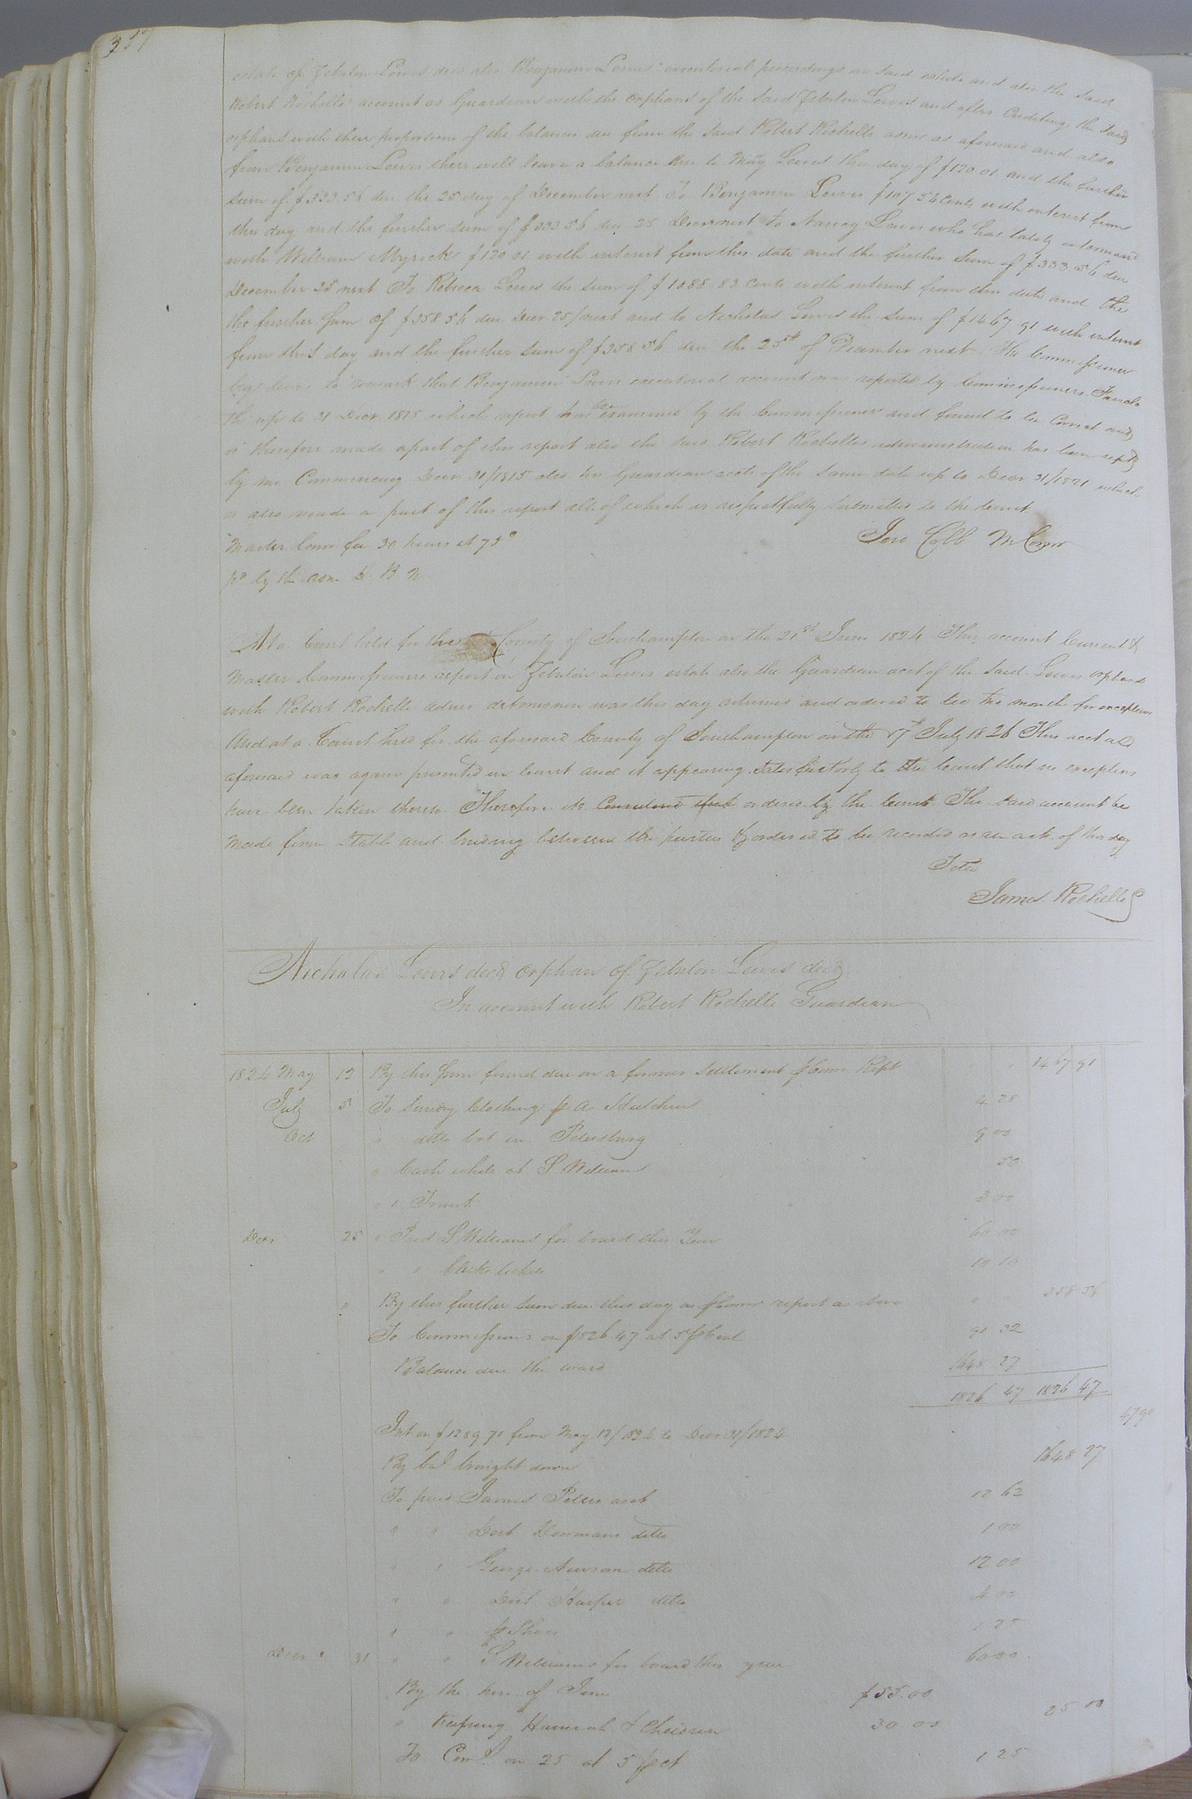 estate of Zebulon Lewis decd also Benjamin Lewis executorial proceedings on said estate and also the said
Robert Rochelle account as Guardian with the orphans of the said Zebulon Lewis and after Crediting the said
orphans with their proportion of the balance due from the said Robert Rochelle admr as aforesaid and also
from Benjamin Lewis there will leave a balance due to Lewis this day of $120.01 and the further
sum of $333.56 due the 25 day of December next To Benjamin Lewis $107.54 Cents with interest from
this day and the further sum of $333 56 due 25 Decr next to Nancy Lewis who has lately intermarried
with William Myrick $120 01 with interest from this date and the further Sum of $333.56 due
December 25 next To Rebecca Lewis the sum of $1088.83 Cents with interest from this date and the
the further sum of $358 56 due Decr 25/next and to Nicholas Lewis the sum of $1467 91 with interest
from this day and the further sum of $358 56 due the 25th of December next. The Commissioner
begs leave to remark that Benjamin Lewis executorial account was reported by Commissioners
up to 31 Decr 1815 which report has been examined by the Commissioner and found to be Correct and
is therefore made a part of this report also the said Robert Rochelles administration has been reptd
by me Commencing Decr 31/1815 also his Guardian accts of the same date up to Decr 31/1821 which
is also made a part of this report all of which is respectfully submitted to the Court
Master Comr fee 30 hours at 75c
Jere Cobb M Comr
pd by the adm
At a Court held for the County of Southampton on the 21st June 1824 This account Current &
Master Commissioners report on Zebulon Lewis estate also the Guardian acct of the said Lewis orphans
with Robert Rochelle was this day returned and ordered to lie two months for exceptions
And at a Court held for the aforesaid County of Southampton on the 17th July 1826 This acct as
aforesaid was again presented in Court and it appearing satisfactorily to the Court that no exceptions
have been taken thereto Therefore its Considered that ordered by the Court The said account be
made firm stable and binding between the parties & ordered to be recorded as an act of this day
Teste
James Rochelle C
Nicholas Lewis decd orphan of Zebulon Lewis decd
In account with Robert Rochelle Guardian
1824 May 12 By this sum found due on a former settlement p Comr Rept 1467 91
July 5 To Sundry Clothing p A 4 28
Oct " ditto bot in Petersburg 9 00
" Cash while at S Williams 50
" " 3 00
Decr 25 " Paid S Williams for board this Year 60 00
" " 10 10
" By this further sum due this day as p Comr report as above 358 56
To Commissions on $1826 47 at 5 p Cent 91 32
Balance due the ward 1648 27
1826 47 1826 47
Int on $1289 71 from May 12/1824 to Decr 31/1824 47 90
By bal brought down 1648 27
To paid James acct 12 62
" " Doct ditto 1 00
" " George ditto 12 00
" " Doct Harper ditto 4 00
" " p Shoes 1 25
Decr 31 " " S Williams for board this year 60 00
By the hire of $55.00
" Keeping Hannah & Children 30 00 25 00
To Coms on 25 at 5 p ct 1 25